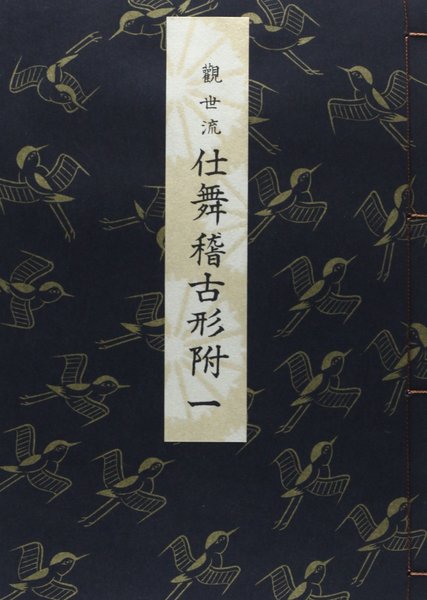 觀世流 仕舞稽古形附 一